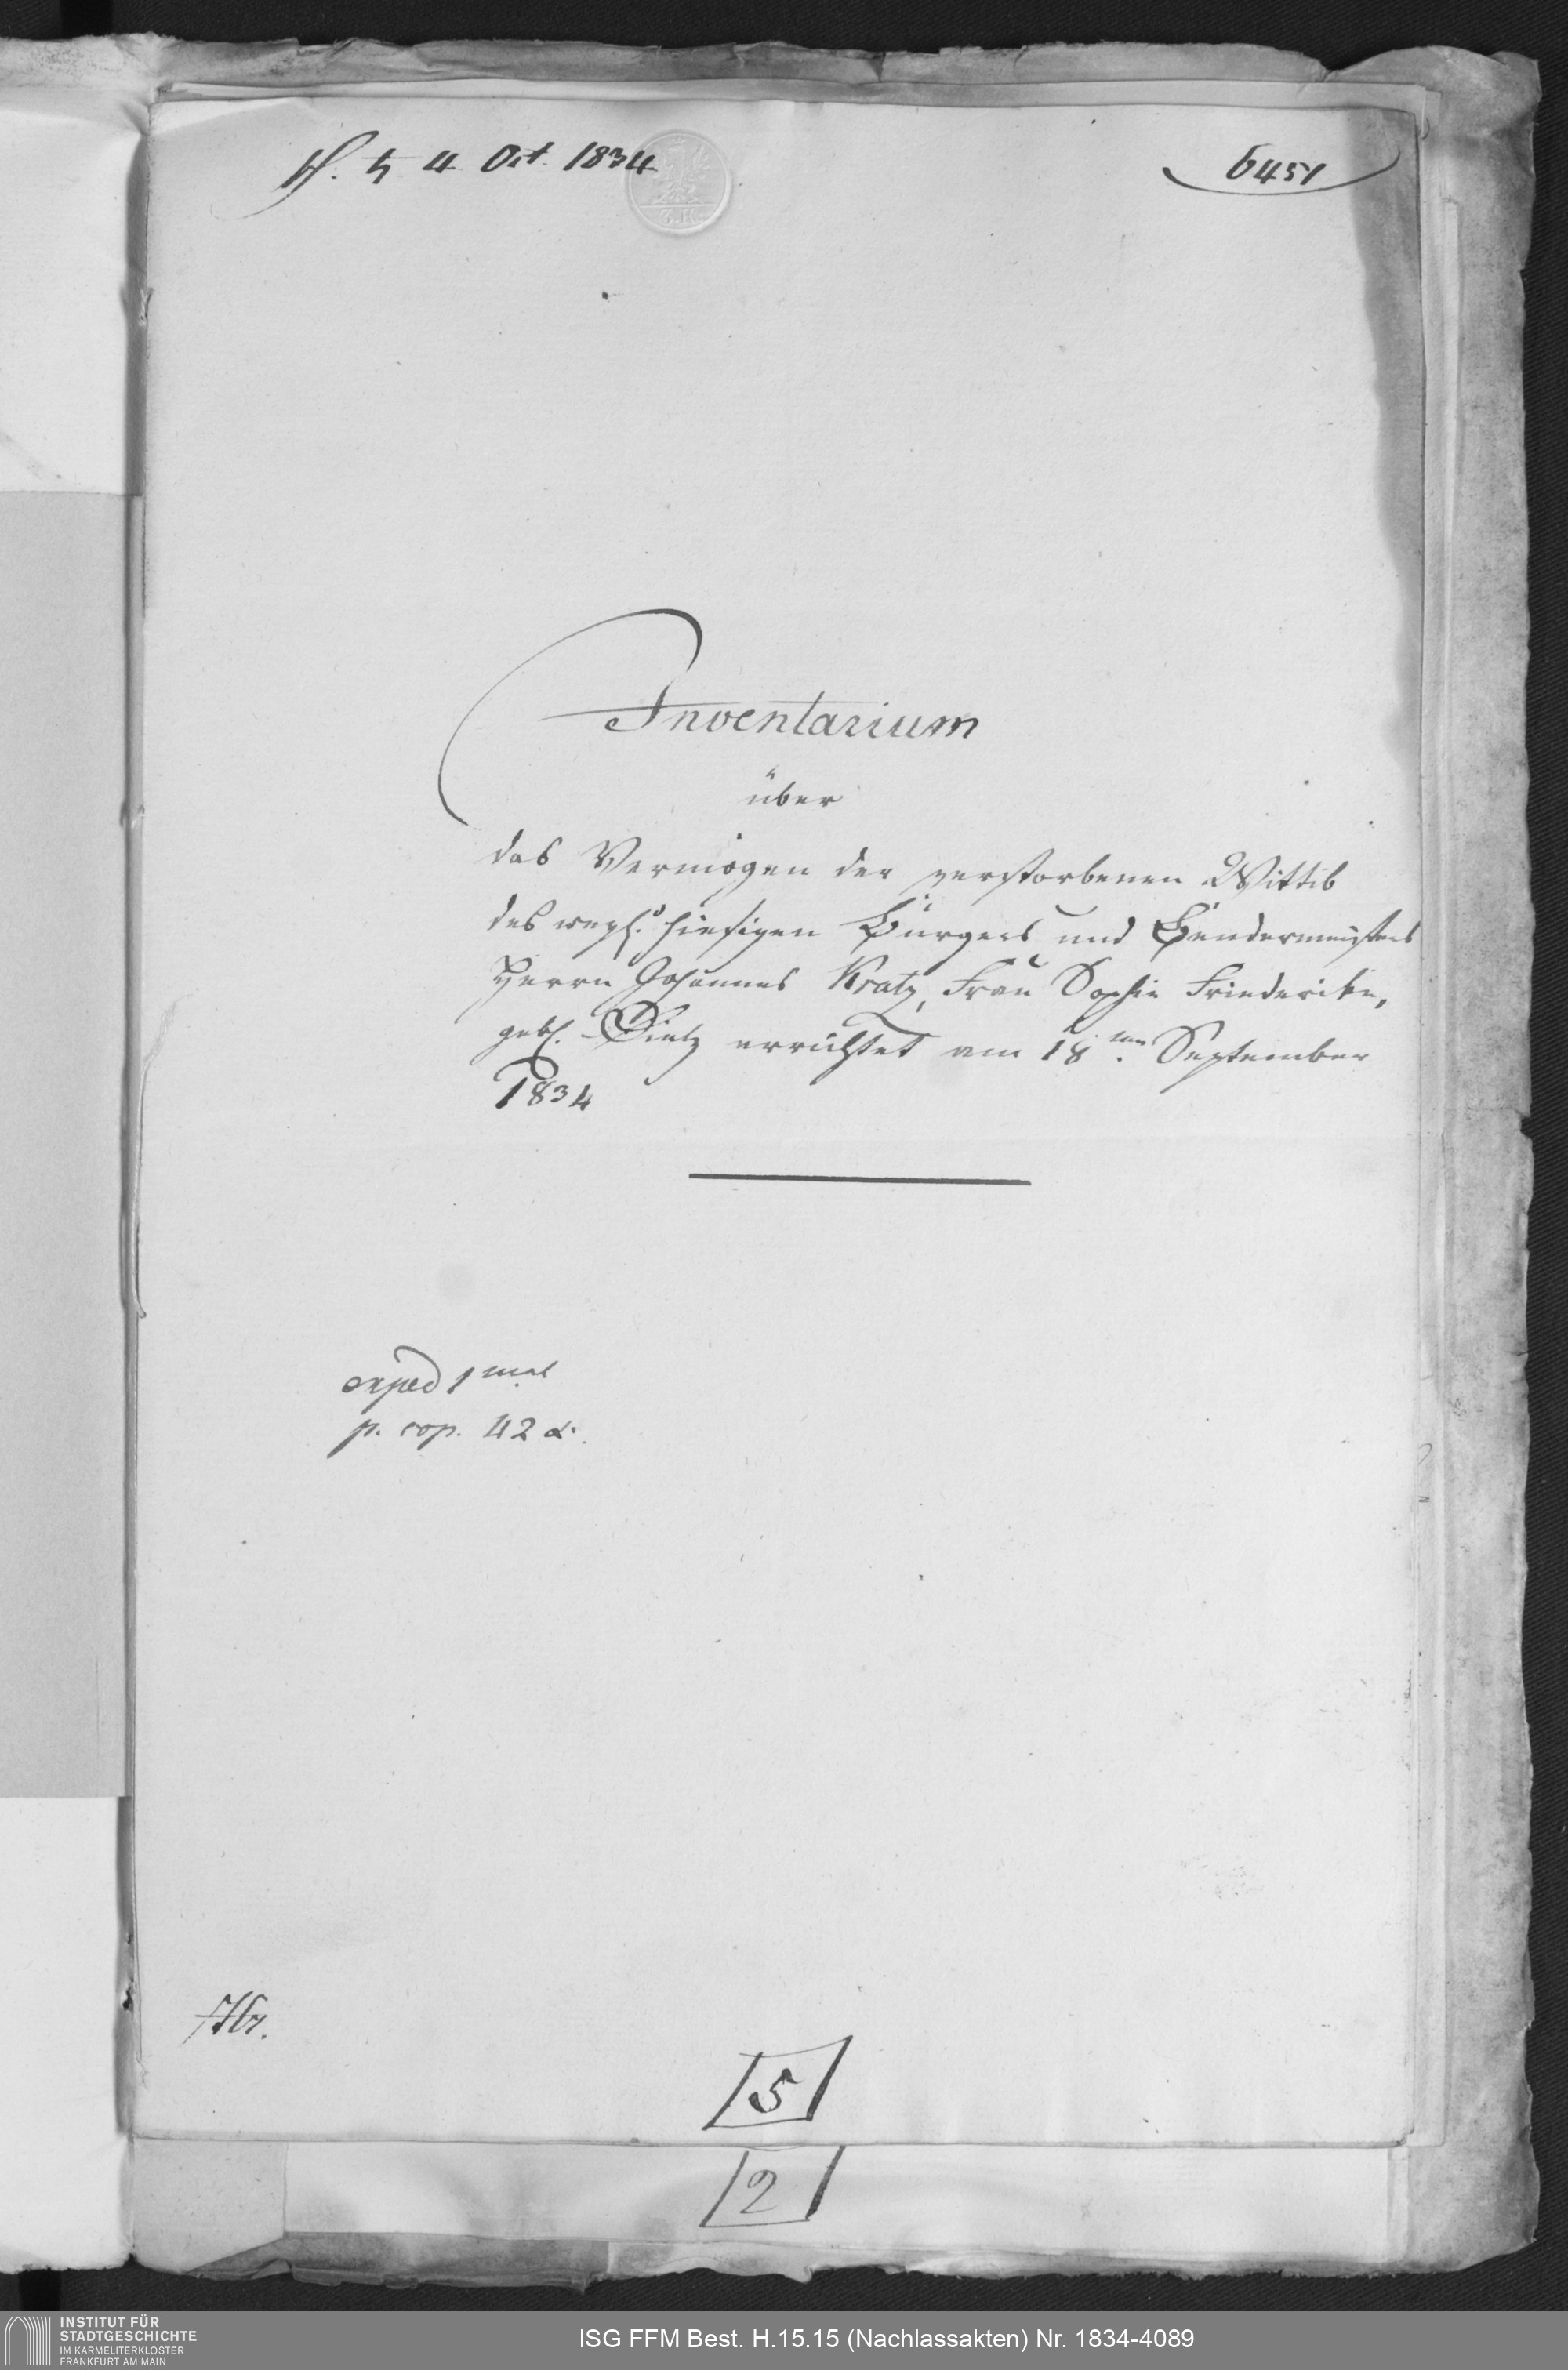 4 Oct. 1834
6451
3.K.
Inventarium
über
das Vermögen der verstorbenen Wittib
des hiesigen Bürgers und Bendermeisters
Herrn Johannes Kratz, Frau Sophie Friederike,
geb. Dietz errichtet am 18ten September
1834
exped 1 mal
p. cop. 42 x.
5
2
INSTITUT FÜR
STADTGESCHICHTE
IM KARMELITERKLOSTER
FRANKFURT AM MAIN
ISG FFM Best. H.15.15 (Nachlassakten) Nr. 1834-4089